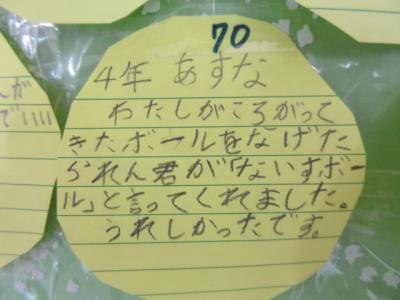 70
4年 あすな
わたしがころがって
きたボールをなげた
られん君が「ないすボー
ル」と言ってくれました。
うれしかったです。
んが
でいい